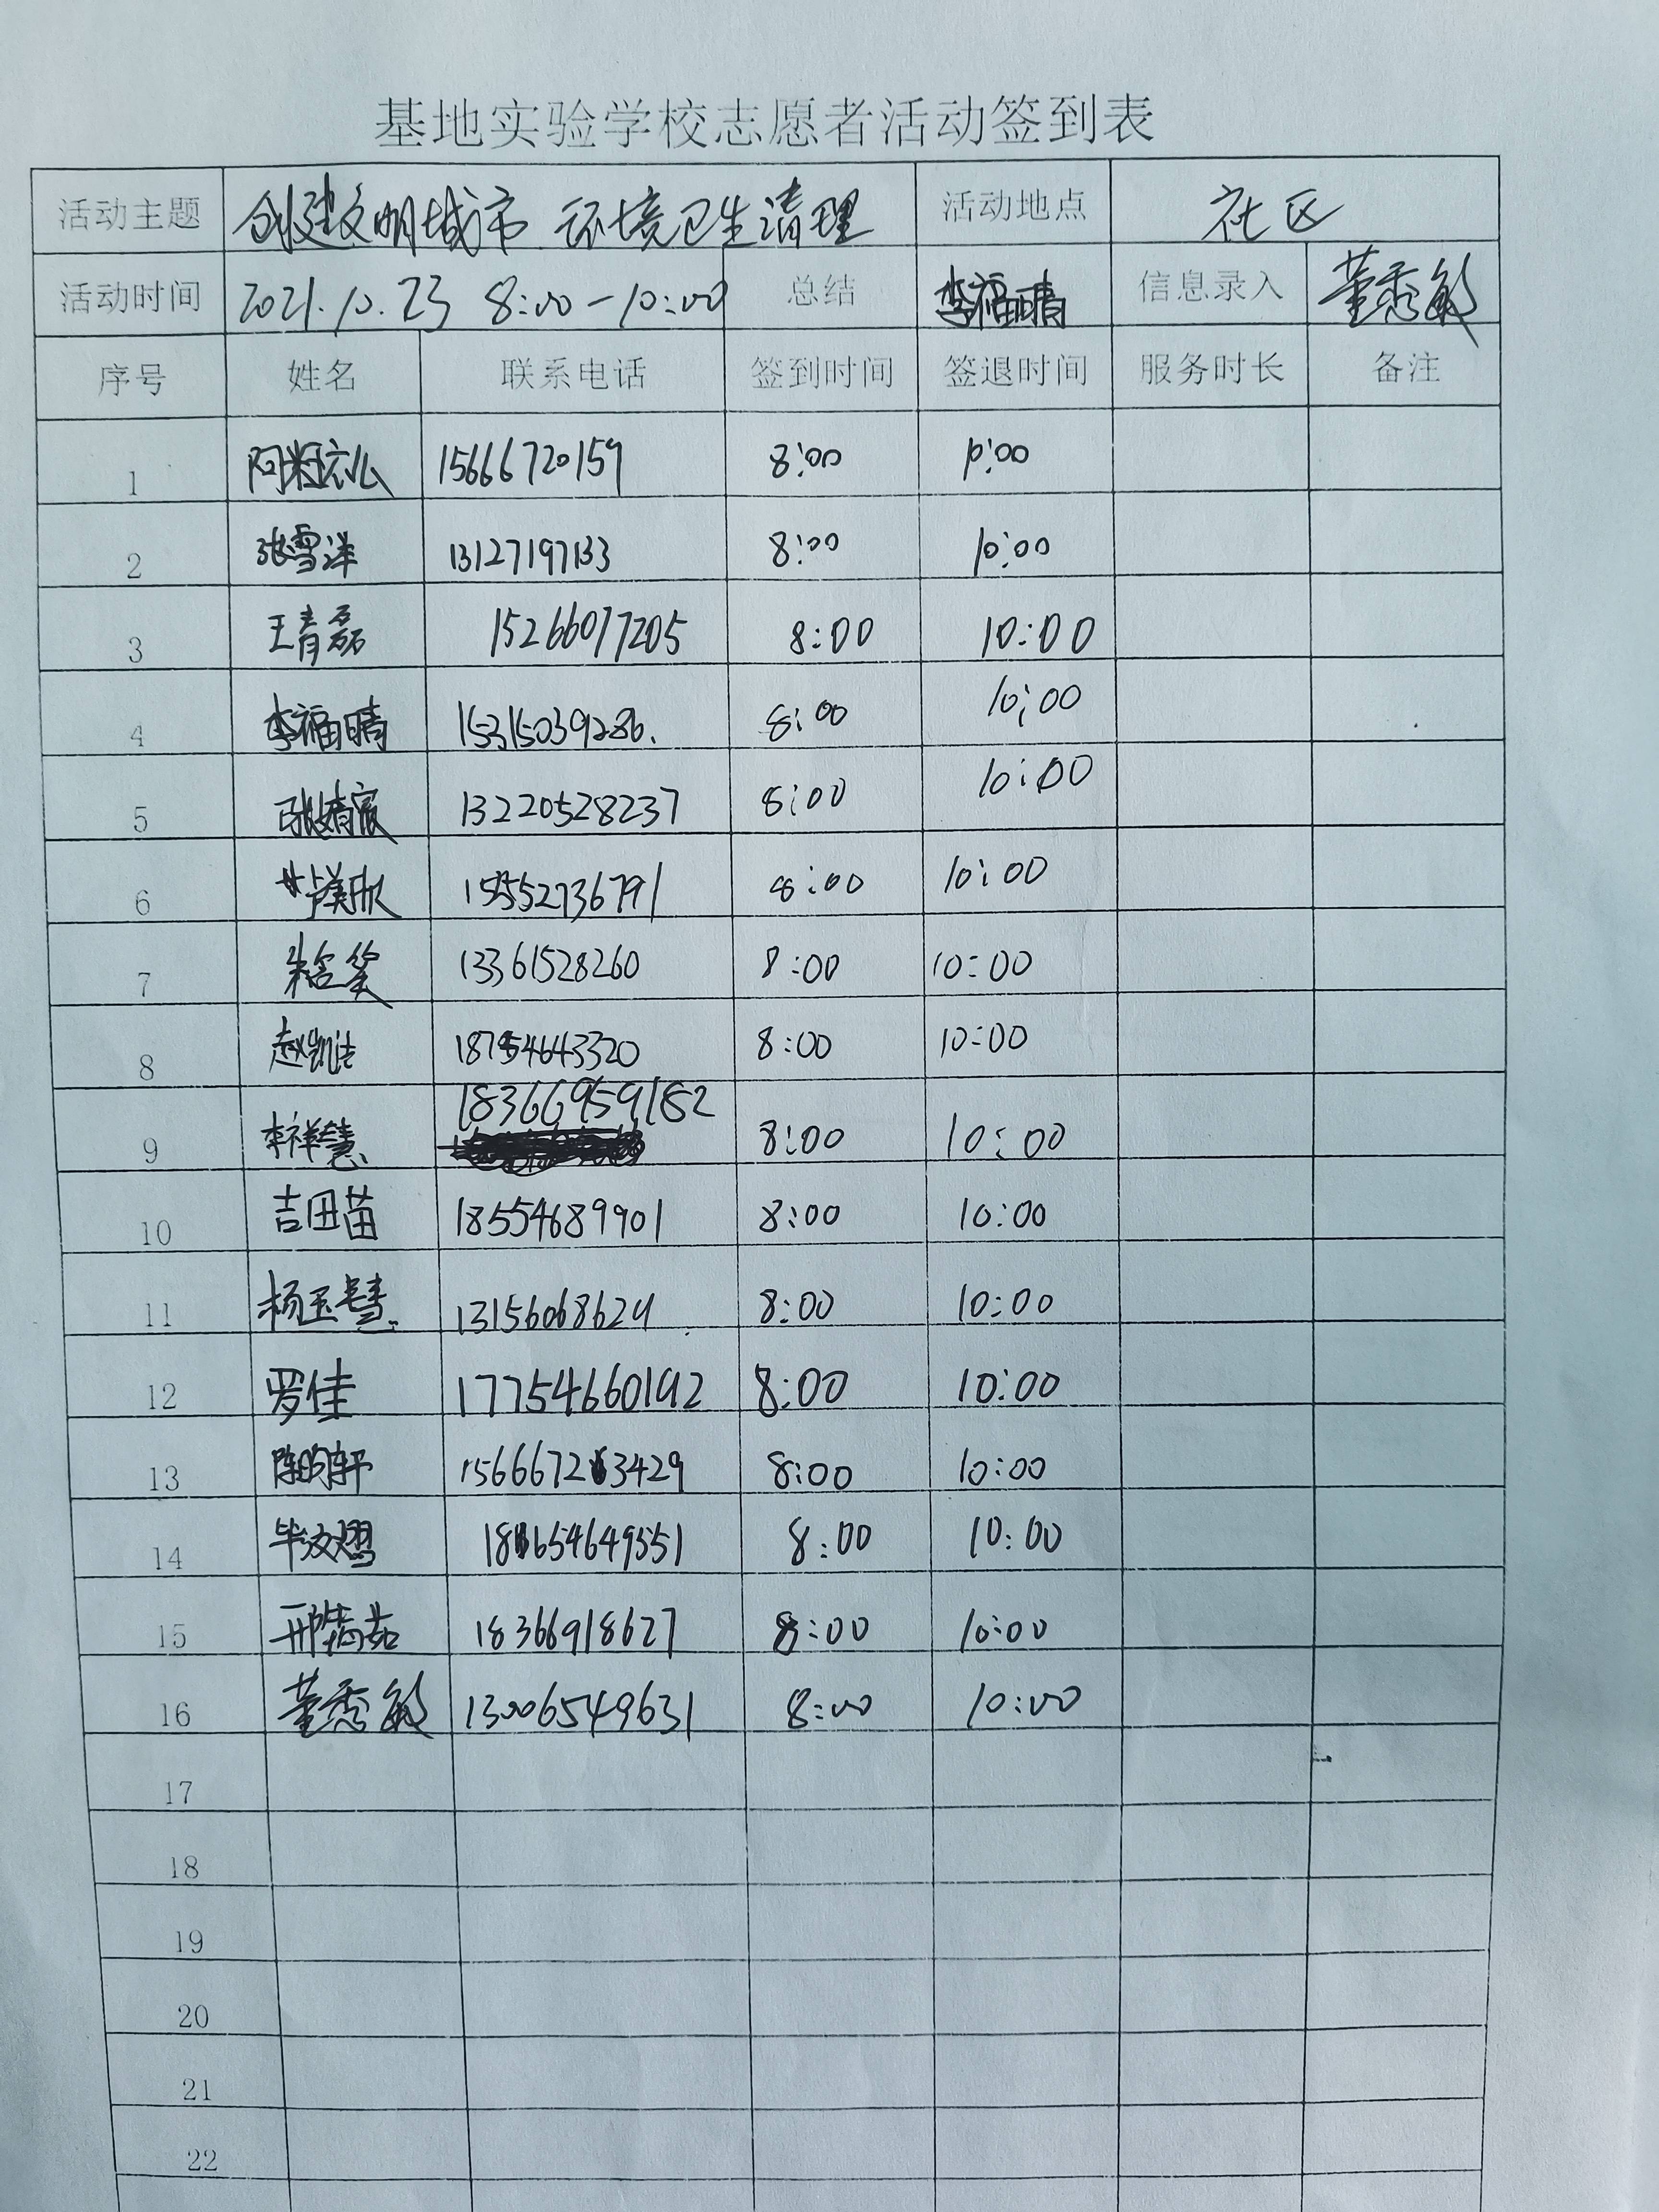 基地实验学校志愿者活动签到表
活动主题 创建文明城市 环境卫生清理 活动地点 社区
活动时间 2021.10.23 8:00-10:00 总结 李福晴 信息录入 董秀敏
序号 姓名 联系电话 签到时间 签退时间 服务时长 备注
1 15666720159 8:00 10:00
2 张雪洋 13127197133 8:00 10:00
3 王青磊 15266077205 8:00 10:00
4 李福晴 15315039286. 8:00 10:00
5 13220528237 8:00 10:00
6 15552736791 8:00 10:00
7 朱含笑 13361528260 8:00 10:00
8 赵凯洁 18754643320 8:00 10:00
9 李祥慧 18366959182 8:00 10:00
10 吉田苗 18554689901 8:00 10:00
11 杨玉慧 13156068624 8:00 10:00
12 罗佳 17754660192 8:00 10:00
13 陈昀轩 8:00 10:00
14 8:00 10:00
15 18366918627 8:00 10:00
16 董秀敏 13006549631 8:00 10:00
17
18
19
20
21
22